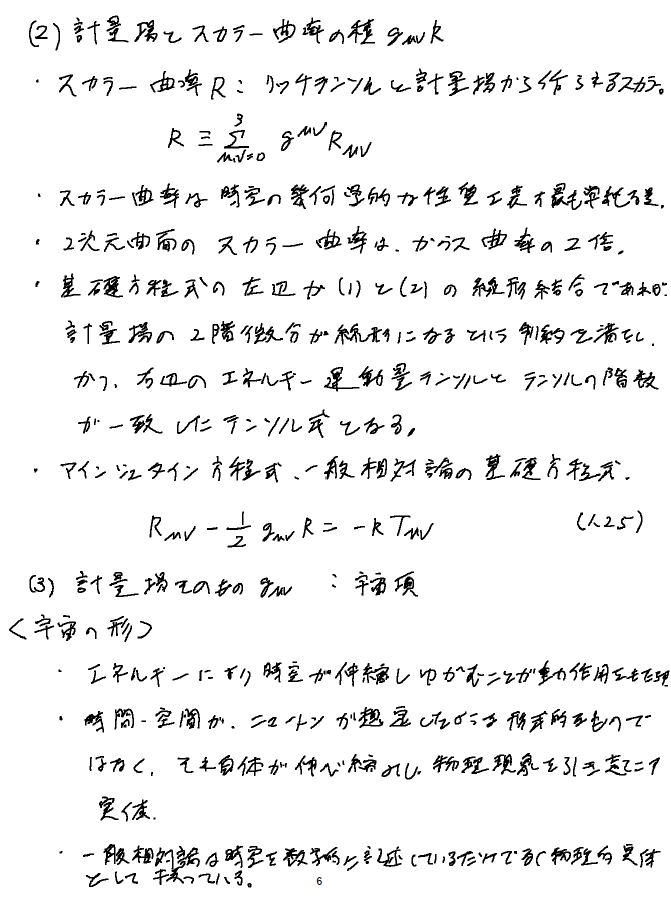 (2) 計量場とスカラー曲率の積 gμνR
・スカラー曲率R: リッチテンソルと計量場から作られるスカラー。
R ≡ Σ^3_{μ,ν=0} g^{μν} R_{μν}
・スカラー曲率は時空の幾何学的な性質を表す最も単純な量.
・2次元曲面のスカラー曲率は、ガウス曲率の2倍.
・基礎方程式の左辺が(1)と(2)の線形結合であれば.
計量場の2階微分が線形になるという制約を満たし.
かつ、右辺のエネルギー運動量テンソルとテンソルの階数
が一致したテンソル式となる。
・アインシュタイン方程式、一般相対論の基礎方程式.
R_{μν} - 1/2 g_{μν} R = -k T_{μν} (1.25)
(3) 計量場そのもの gμν : 宇宙項
<宇宙の形>
・エネルギーにより時空が伸縮しゆがむことが重力作用をもたらす
・時間・空間が、ニュートンが想定したような形式的なもので
はなく、それ自体が伸び縮みし、物理現象を引き起こす
実体.
・一般相対論は時空を数学的に記述しているだけでなく物理的実体
として扱っている。
6